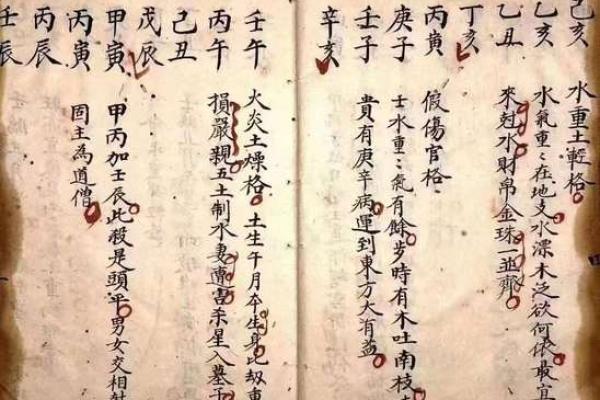 己亥 水重土輕格
乙亥 水氣重重在地支水漂木泛欲何依最宜
乙丑 來尅水財帛金珠一並齊
丁亥
丙寅 假傷官格
庚子 壬水重重氣有餘步時有木吐南枝
壬子 貴有庚辛病運到東方大有益
辛亥
壬午 火炎土燥格 土生午月夲生身比刼重
丙午 損嚴親五土制水妻遭害杀星入墓子
己丑
戊辰
甲寅 甲丙加壬辰此殺是頭平男女交相
丙寅 固主為道僧
丙辰
壬辰